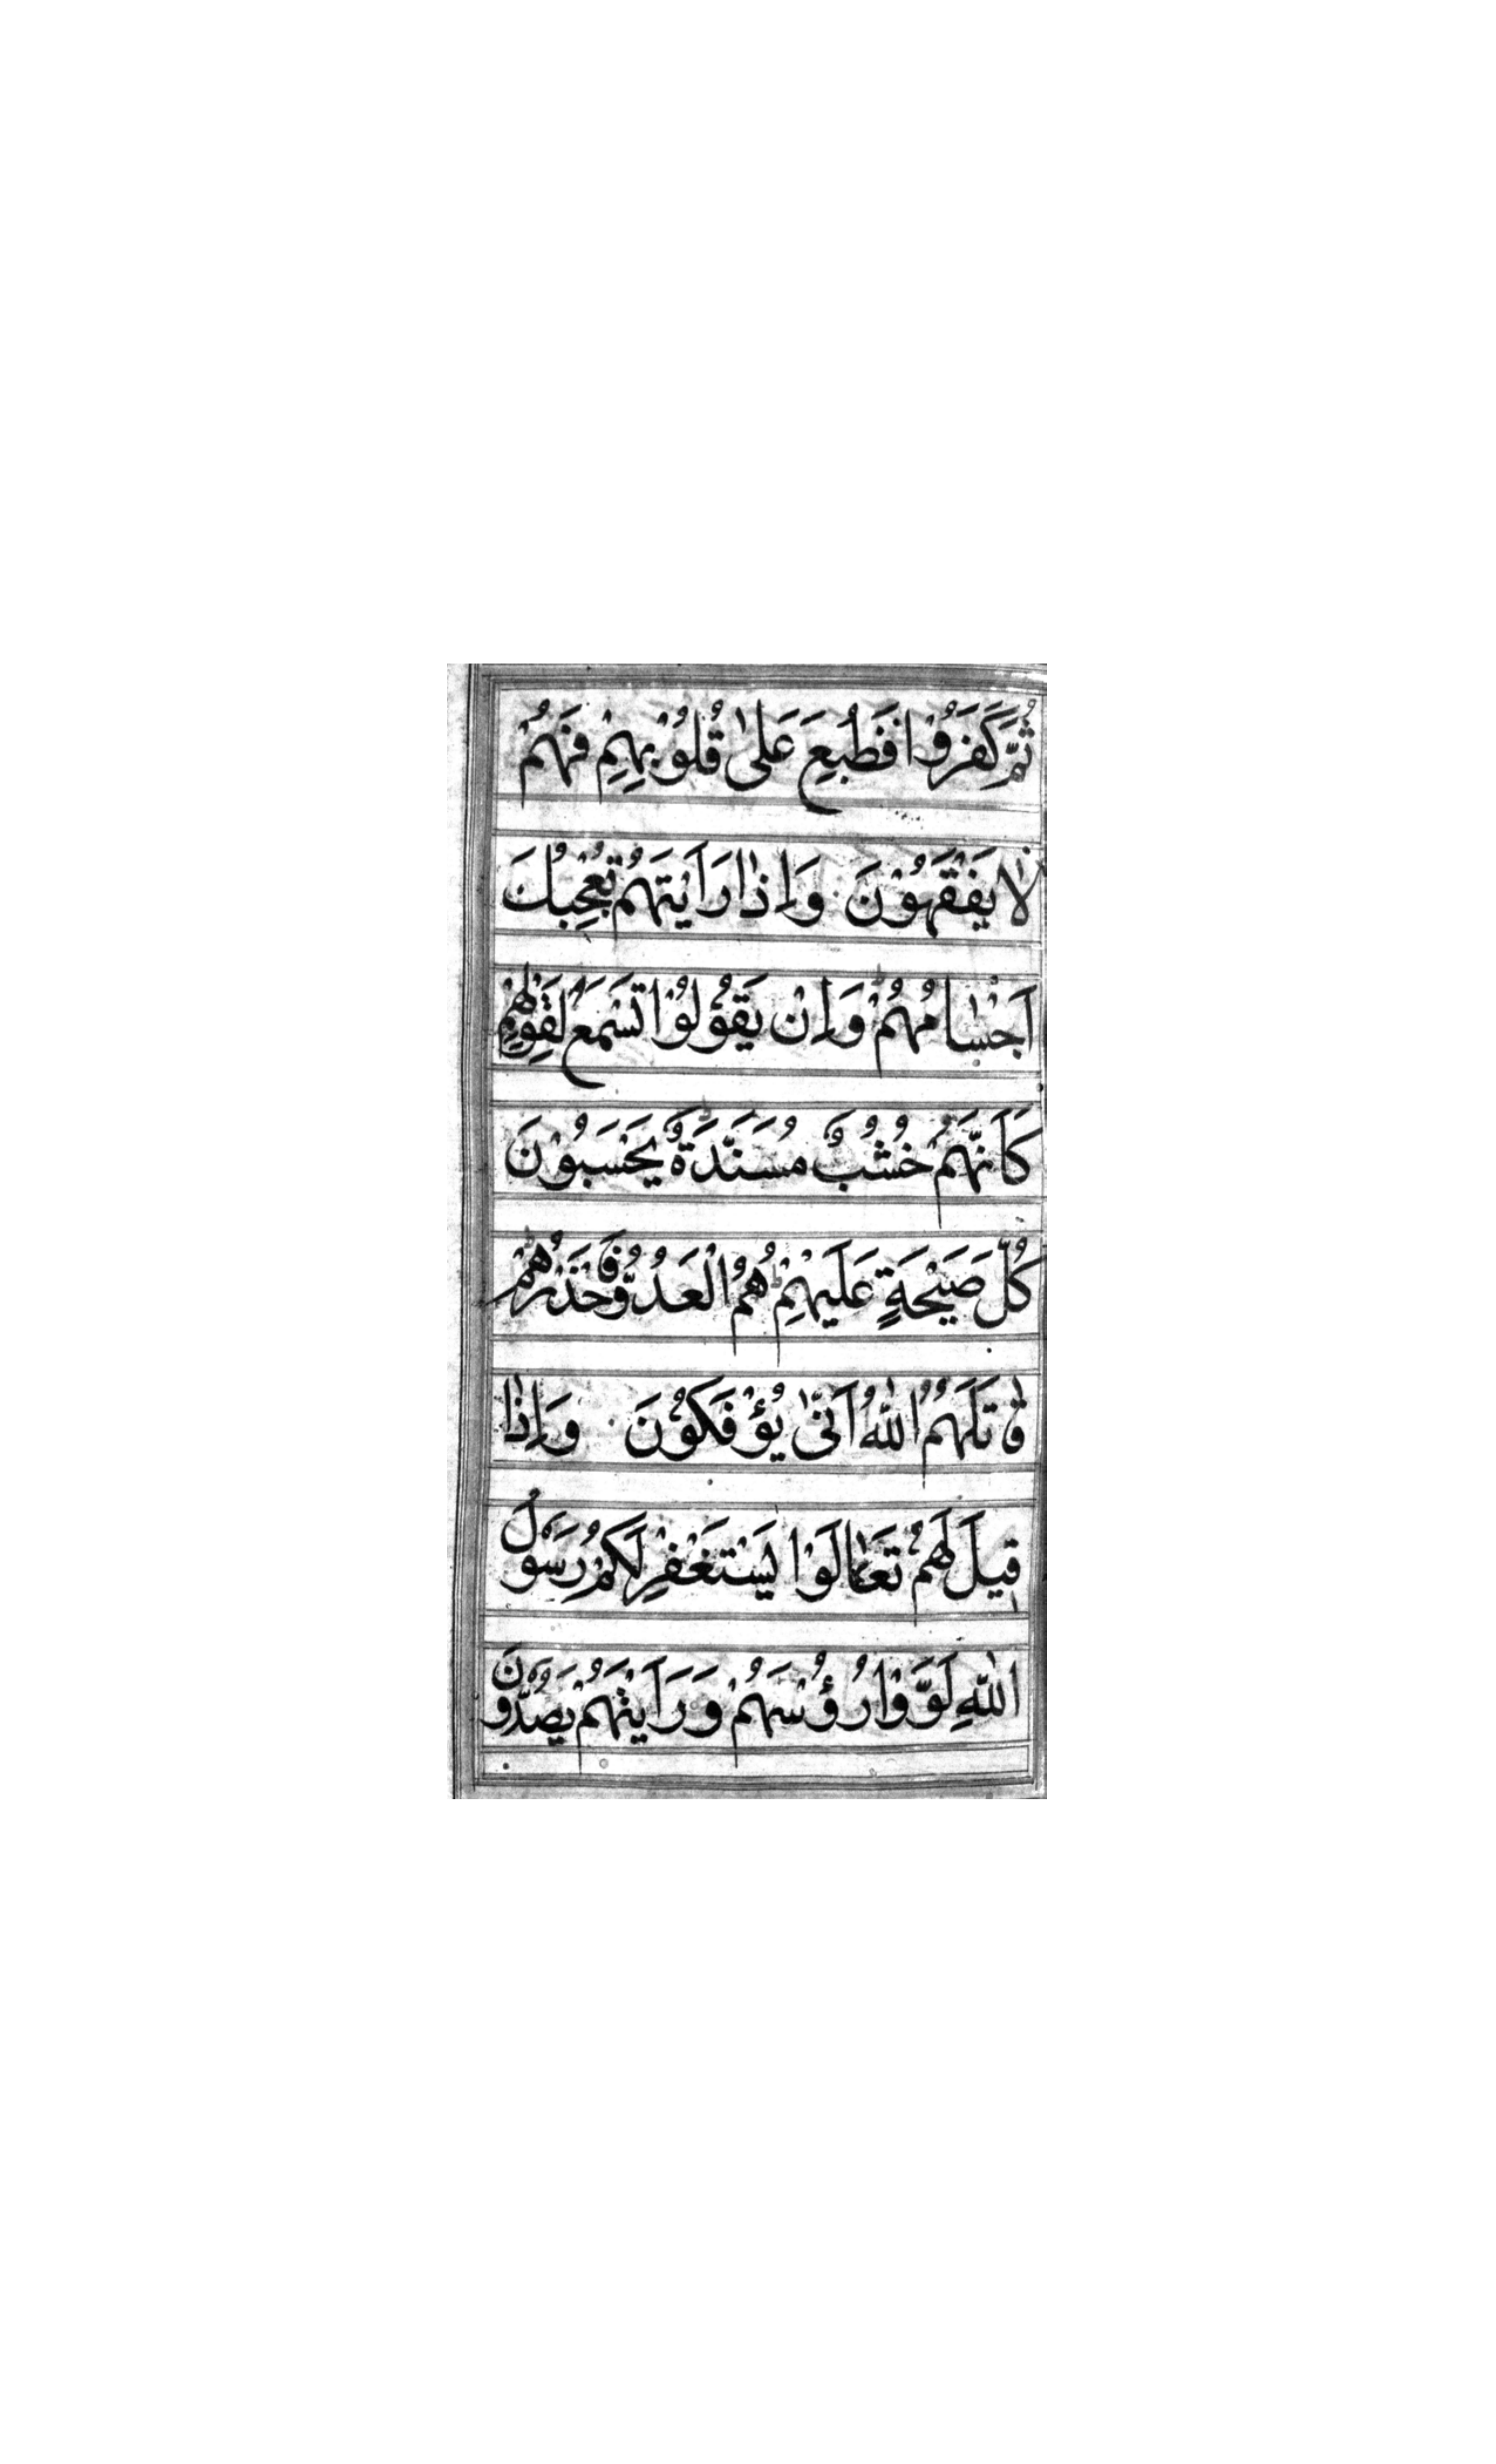 ثُمَّ كَفَرُوْا فَطُبِعَ عَلٰى قُلُوْبِهِمْ فَهُمْ
لَا يَفْقَهُوْنَ وَاِذَا رَاَيْتَهُمْ تُعْجِبُكَ
اَجْسَامُهُمْ وَاِنْ يَقُوْلُوْا تَسْمَعْ لِقَوْلِهِمْ
كَاَنَّهُمْ خُشُبٌ مُسَنَّدَةٌ يَحْسَبُوْنَ
كُلَّ صَيْحَةٍ عَلَيْهِمْ هُمُ الْعَدُوُّ فَاحْذَرْهُمْ
قَاتَلَهُمُ اللّٰهُ اَنّٰى يُؤْفَكُوْنَ وَاِذَا
قِيلَ لَهُمْ تَعَالَوْا يَسْتَغْفِرْ لَكُمْ رَسُوْلُ
اللّٰهِ لَوَّوْا رُؤُسَهُمْ وَرَاَيْتَهُمْ يَصُدُّوْنَ